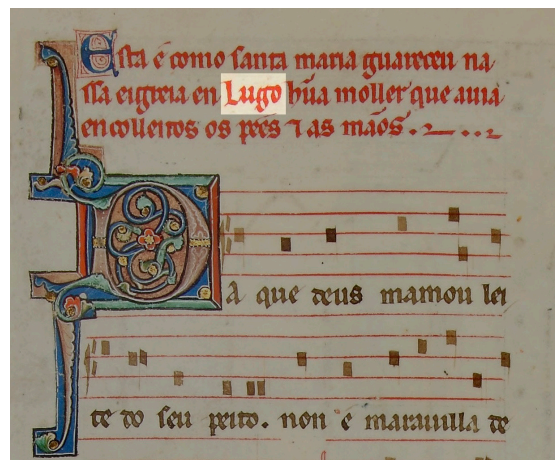 Esta é como santa maria guareceu na
ssa eigreia en Lugo hũa moller que auia
encolleitos os pees ⁊ as mãos.
Da que deus mamou lei
te do seu peito. non é marauilla de